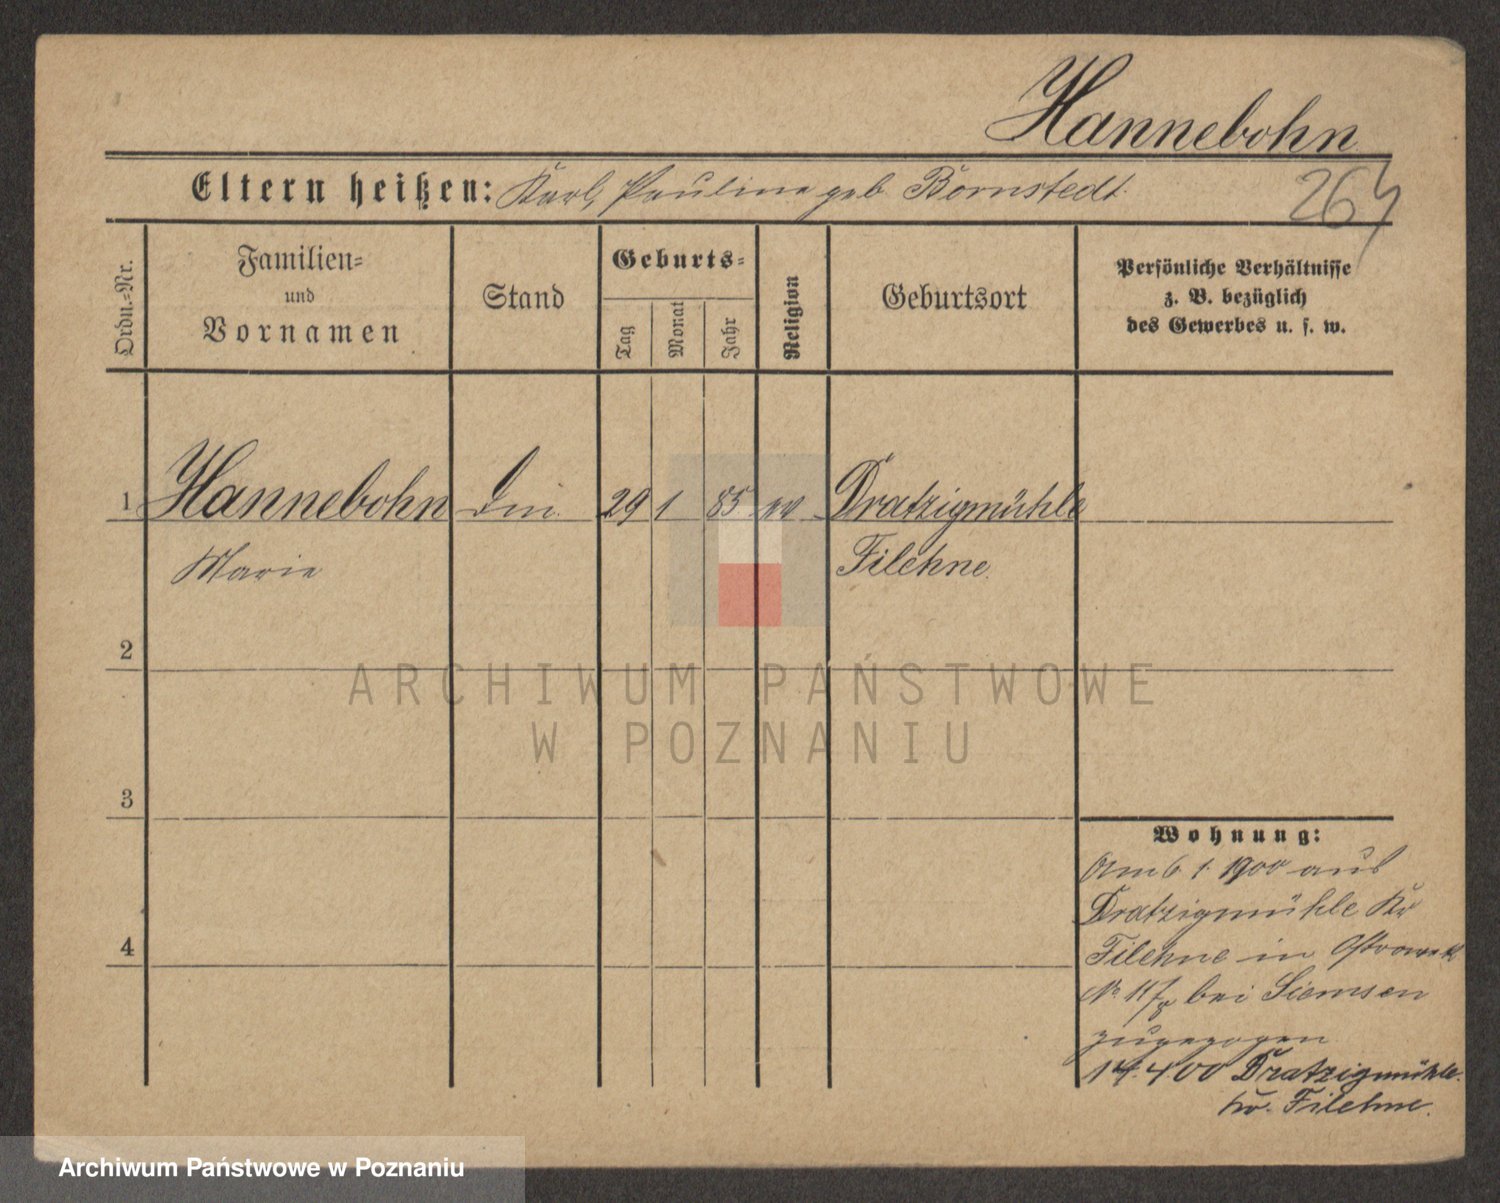 Hannebohn
Eltern heißen: Karl, Pauline geb. Bornstedt.
264
Ordn.=Nr.
Familien=
und
Vornamen
Stand
Geburts=
Tag
Monat
Jahr
Religion
Geburtsort
Persönliche Verhältnisse
z. B. bezüglich
des Gewerbes u. s. w.
1 Hannebohn 29 1 85 ev Dratzigmühle
Marie Filehne.
2
3
4
Wohnung:
Am 6 1. 1900 aus
Dratzigmühle Kr
Filehne in
No 11/ bei Siemsen
zugezogen
14.4 00 Dratzigmühle.
Kr. Filehne.
ARCHIWUM PAŃSTWOWE
W POZNANIU
Archiwum Państwowe w Poznaniu